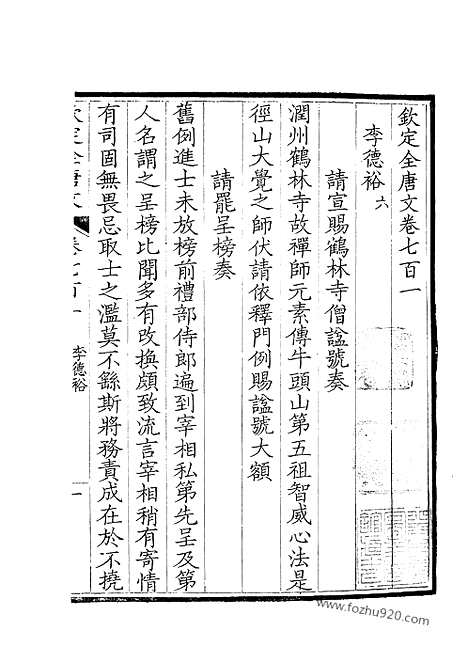 欽定全唐文卷七百一
李德裕 六
請宣賜鶴林寺僧諡號奏
潤州鶴林寺故禪師元素傳牛頭山第五祖智威心法是
徑山大覺之師伏請依釋門例賜諡號大額
請罷呈榜奏
舊例進士未放榜前禮部侍郎遍到宰相私第先呈及第
人名謂之呈榜比聞多有改換頗致流言宰相稍有寄情
有司固無畏忌取士之濫莫不繇斯將務責成在於不撓
欽定全唐文 卷七百一 李德裕 一
www.fozhu920.com